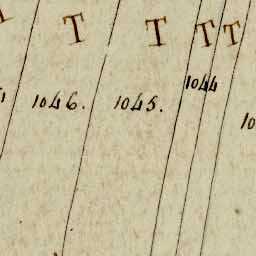 T T T T
1046. 1045. 1044